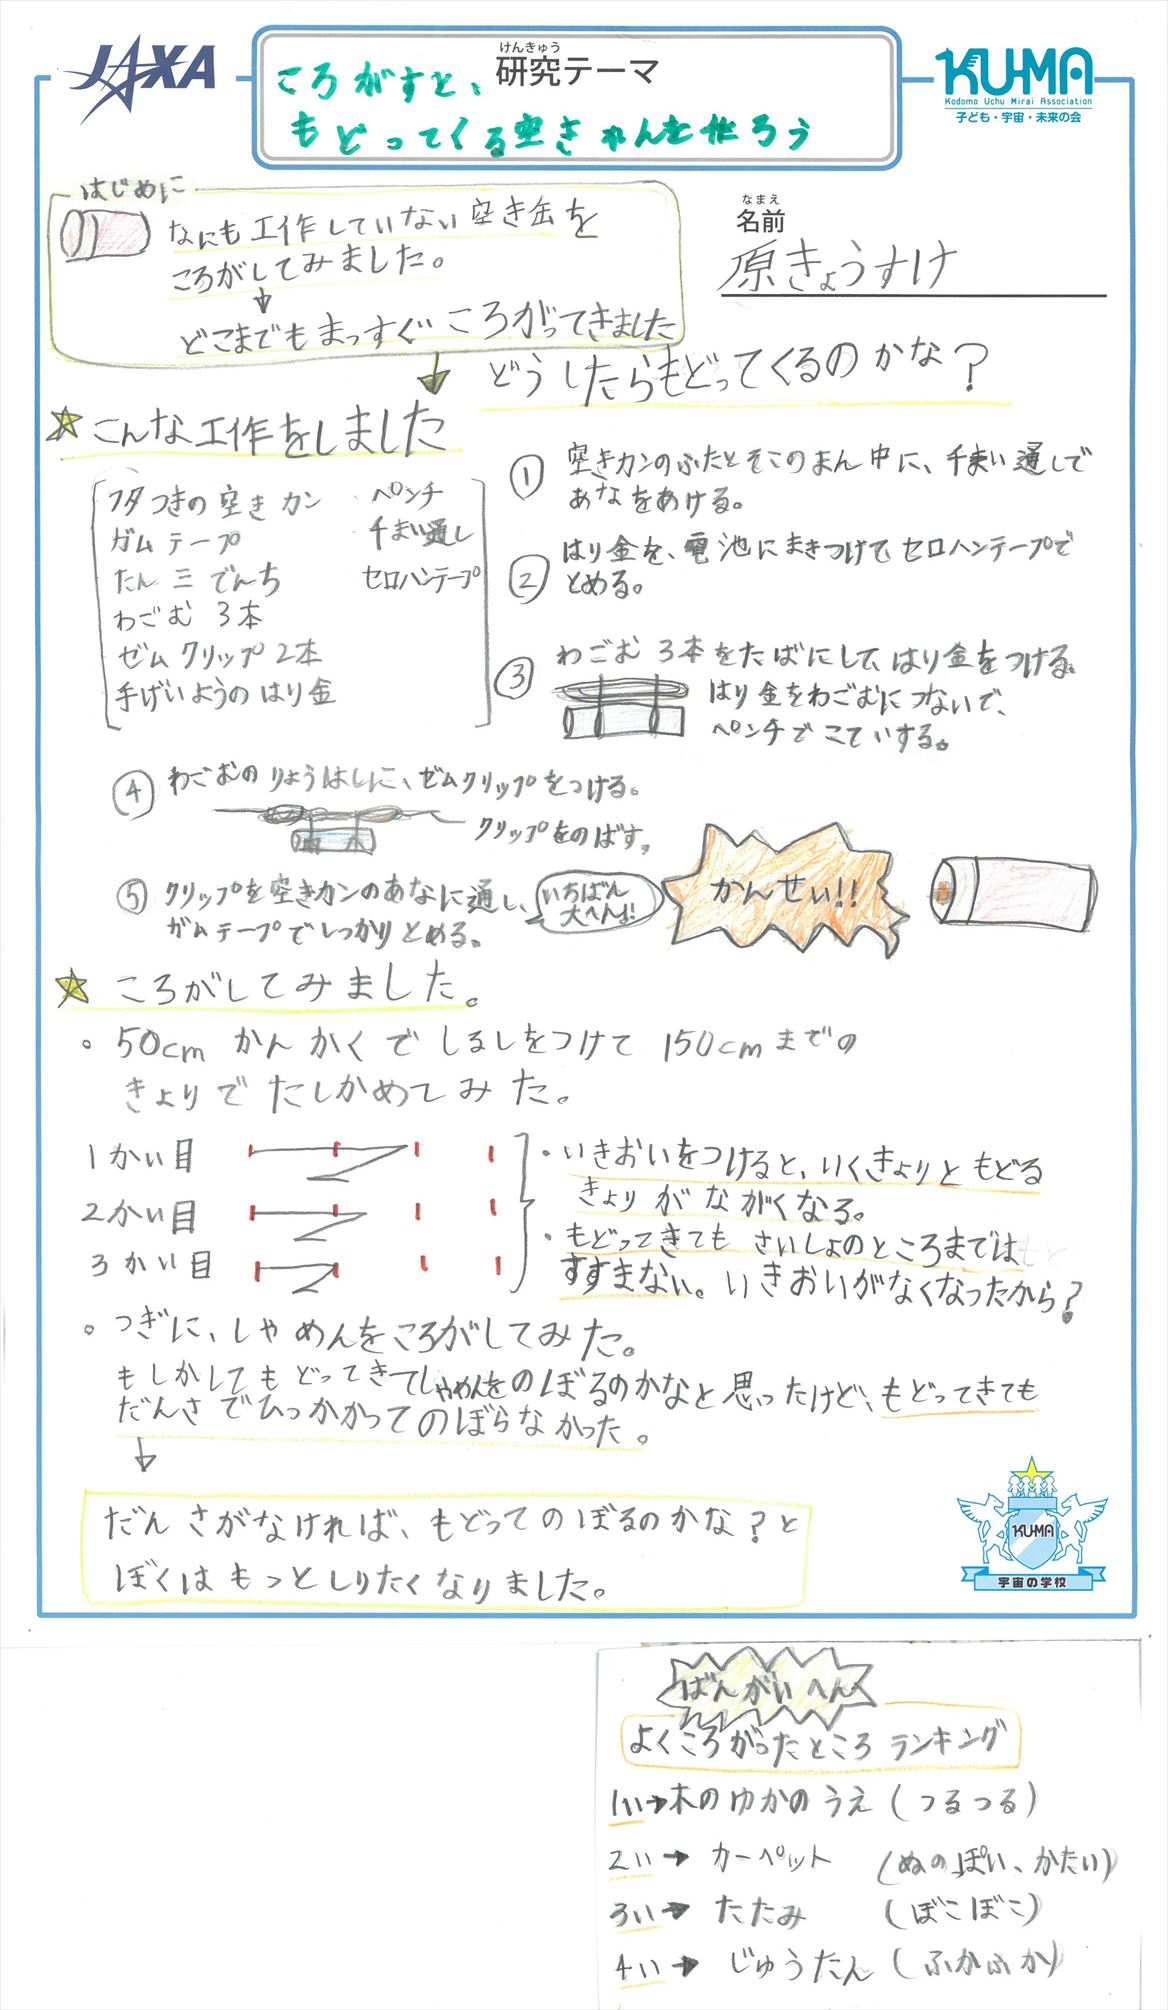 JAXA
けんきゅう
研究テーマ
ころがすと、
もどってくる空きかんを作ろう
KU-MA
Kodomo Uchu Mirai Association
子ども・宇宙・未来の会
はじめに
なにも工作していない空き缶を
ころがしてみました。
↓
どこまでもまっすぐころがってきました
なまえ
名前
原きょうすけ
↓ どうしたらもどってくるのかな?
☆こんな工作をしました
フタつきの空きカン
ガムテープ
たん三でんち
わごむ 3本
ゼムクリップ2本
手げいようのはり金
ペンチ
千まい通し
セロハンテープ
① 空きカンのふたとそこのまん中に、千まい通しで
あなをあける。
② はり金を、電池にまきつけてセロハンテープで
とめる。
③ わごむ3本をたばにして、はり金をつける。
はり金をわごむにつないで、
ペンチでこていする。
④ わごむのりょうはしに、ゼムクリップをつける。
クリップをのばす。
⑤ クリップを空きカンのあなに通し、
ガムテープでしっかりとめる。
いちばん
大へんよ!
かんせい!!
☆ ころがしてみました。
・50cmかんかくでしるしをつけて150cmまでの
きょりでたしかめてみた。
1かい目
2かい目
3かい目
・いきおいをつけると、いくきょりともどる
きょりがながくなる。
・もどってきてもさいしょのところまでは
すすまない。いきおいがなくなったから?
・つぎに、しゃめんをころがしてみた。
もしかしてもどってきてしゃめんをのぼるのかなと思ったけど、もどってきても
だんさでひっかかってのぼらなかった。
↓
だんさがなければ、もどってのぼるのかな?と
ぼくはもっとしりたくなりました。
KU-MA
宇宙の学校
ばんがいへん
よくころがったところランキング
1い→木のゆかのうえ(つるつる)
2い→カーペット(ぬのっぽい、かたい)
3い→たたみ(ぼこぼこ)
4い→じゅうたん(ふかふか)